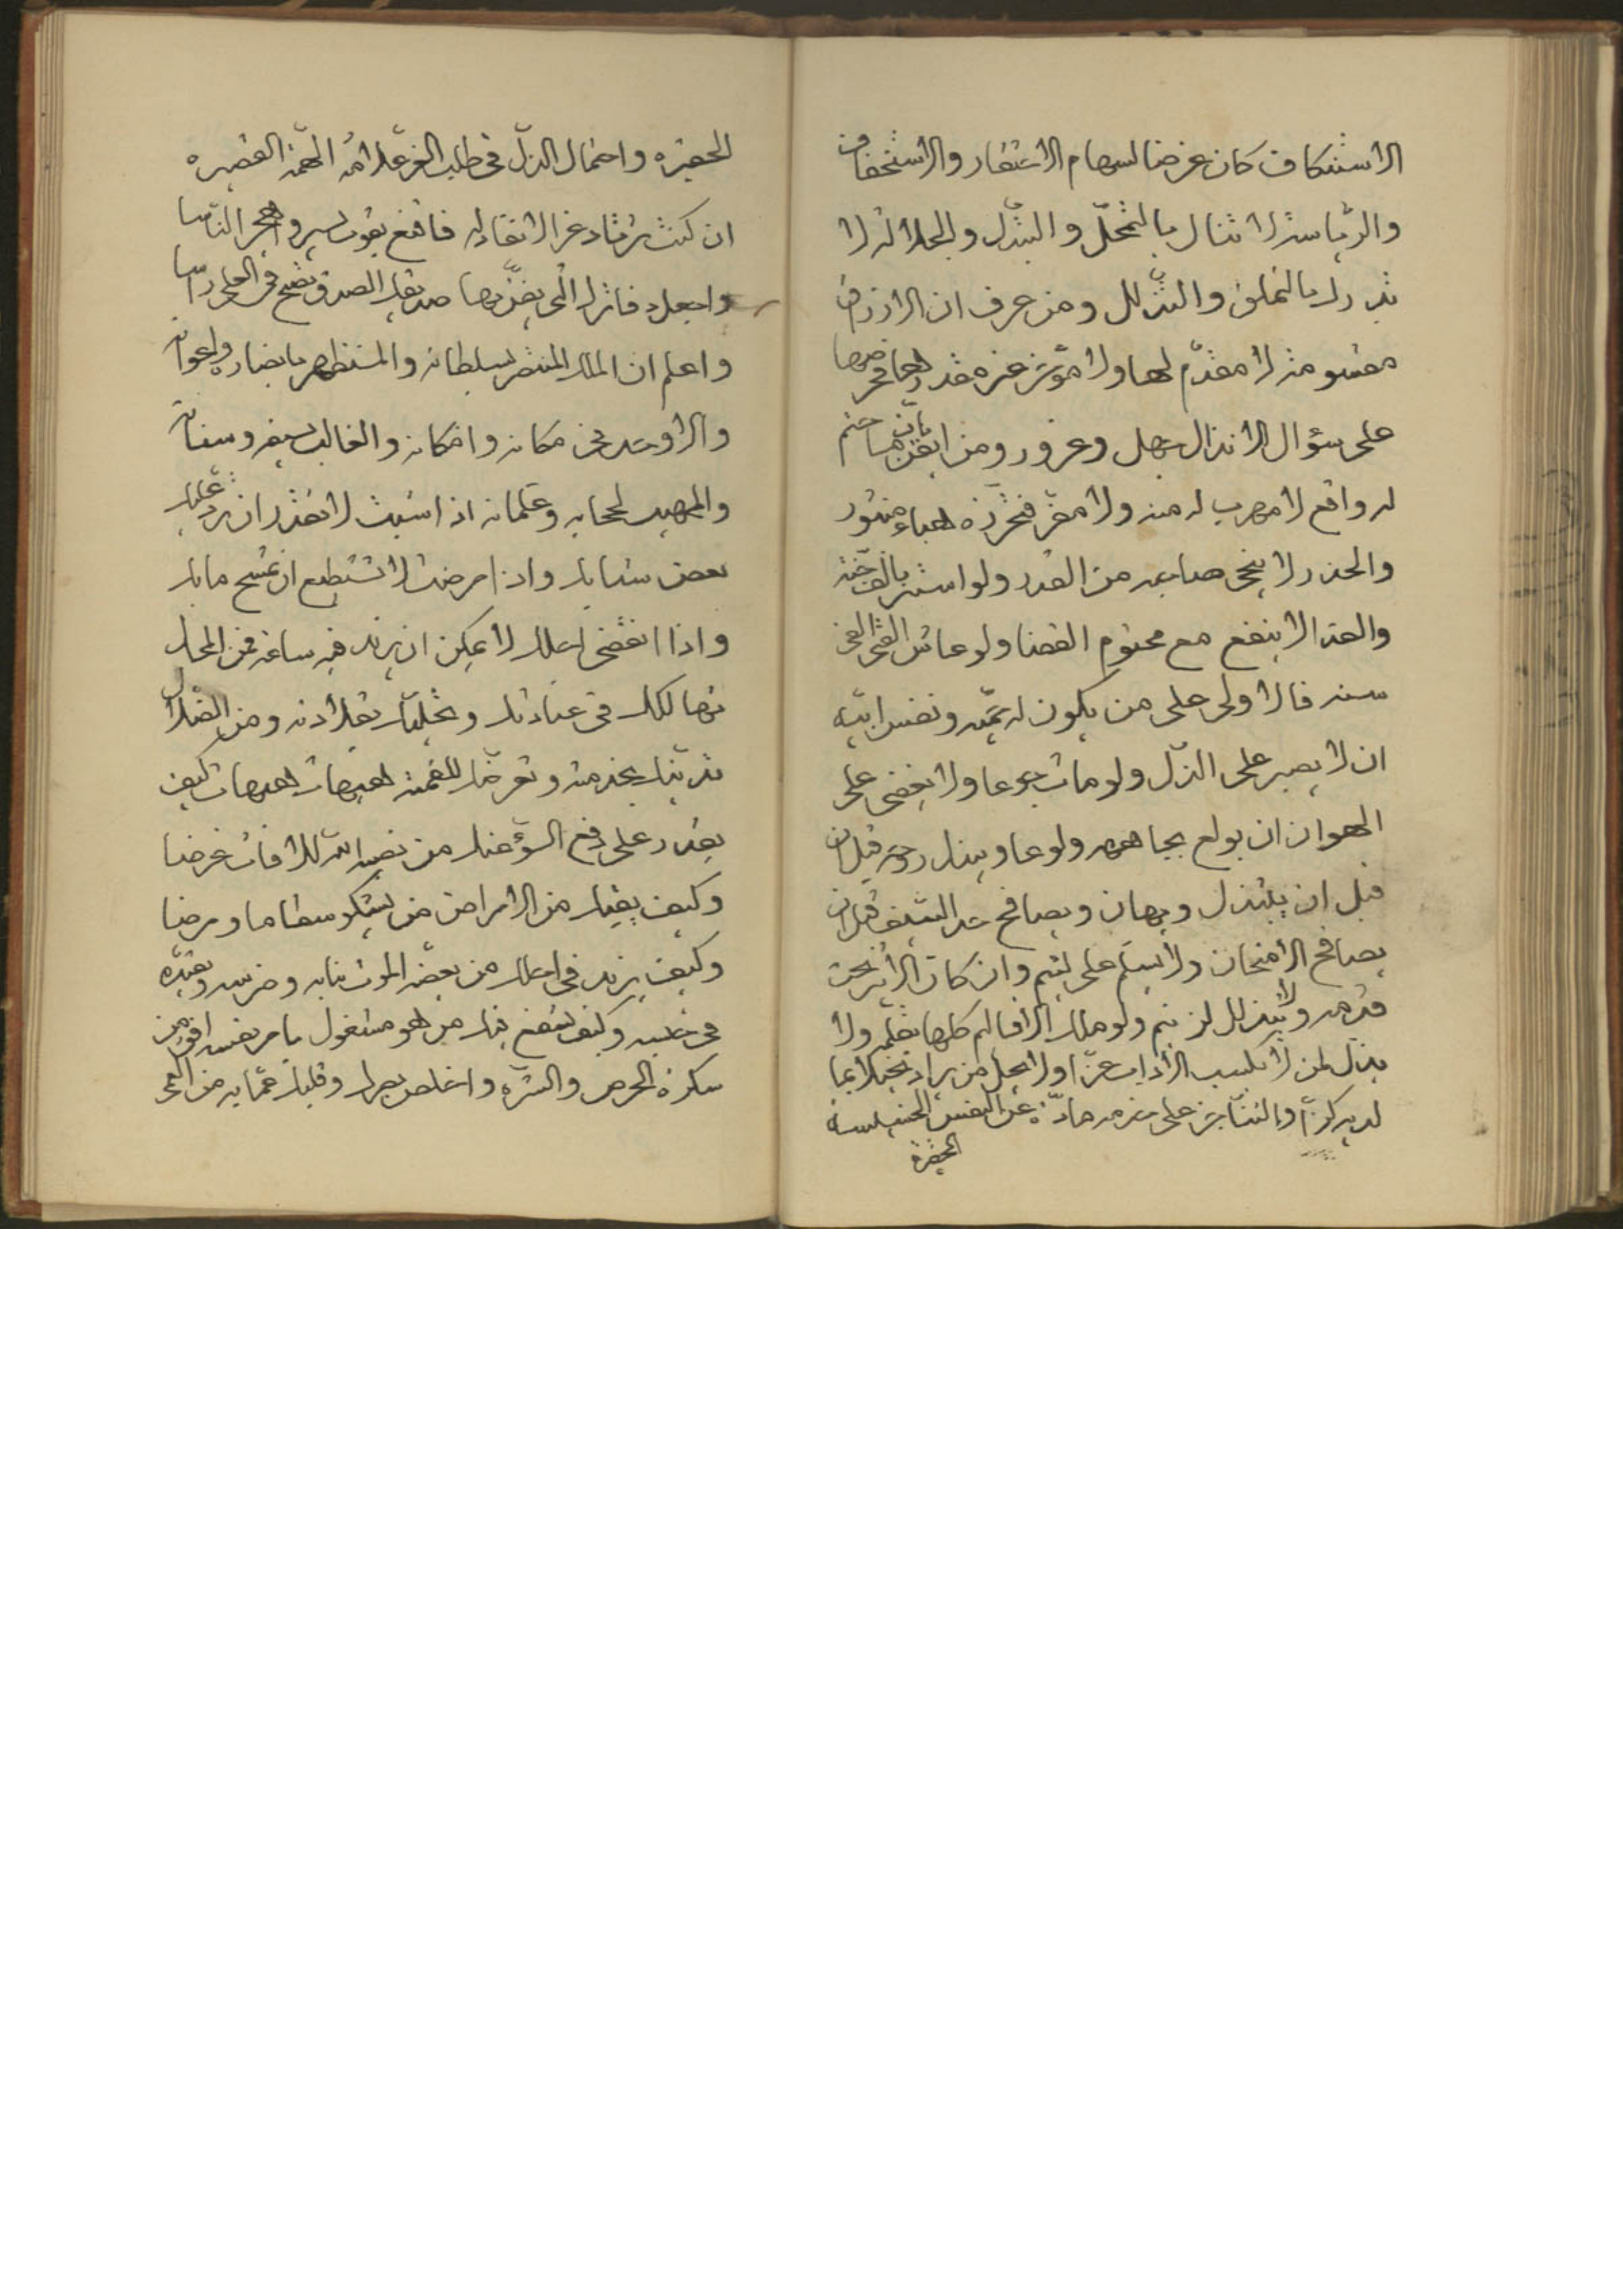 الاستنكاف كان غرضا لسهام الاحتقار والاستخفاف
والرياسة لا تنال بالتمحّل والتبذّل والجلالة لا
تدرك بالتملق والتذلل ومن عرف ان الارزاق
مقسومة لا مقدّم لها ولا مؤخر غيره مقدرها فحرصها
على سؤال الانذال جهل وغرور ومن ايقن بان ما حتم
له واقع لا مهرب له منه ولا مفر فتحرزه هباء منثور
والحذر لا ينجى صاحبه من القدر ولو استتر بالف جنّة
والحذر لا ينفع مع محتوم القضا ولو عاش الفتى الفى
سنه فالاولى على من يكون له همّيه ونفس ابيّه
ان لا يصبر على الذل ولو مات جوعا ولا يغضى على
الهوان ان يولع ولوعا ويبذل روحه قبل ان
قبل ان يبتذل ويهان ويصافح حد السيف قبل ان
يصافح الامتحان ولا يسلم على لئيم وان كان الاثير تحت
قدمه ولا يتذلل لزنيم ولو ملك الاقاليم كلها بقلمه ولا
يذل لمن لا يكسب الاداب عزّا ولا يجل من يراد تبجيلا بما
لديه كنزا والتثابر على خدمه عن النفس الخسيسة
الحقيرة
الحقيره واحتمال الذلّ فى طلب العزّ علامة الهمّة القصيره
ان كنت ترتاد عز الاتقاد له فاقنع بقوت يسير واهجر الناسا
واجعل دفاترك التى يعنّ بها صديقك الصدق تضح فى العلى راسا
واعلم ان الملك المنتصر بسلطانه والمستظهر بانصاره واعوانه
والاوحد فى مكانه وامكانه والغالب بسيفه وسنانه
والمهيب لحجابه وغلمانه اذا شبت لا تقدر ان يردّ عليك
بعض شبابك واذا مرضت لا تستطيع ان تمسح ما بك
واذا انقضى اجلك لا يمكن ان يزيد فيه ساعة فمن المحال
تهالكك فى عبادتك وتحلّيك بقلادته ومن الضلال
تديّنك بخدمته وتعرضك للقمته هيهات هيهات كيف
يقدر على دفع السوء عنك من نصبه الله للافات غرضا
وكيف يقيك من الامراض من يشكو سقاما ومرضا
وكيف يزيد فى اجلك من يعضه الموت بنابه وضرسه ويقيّده
فى حبسه وكيف ينفع فيك من هو مشغول بامر نفسه افق من
سكرة الحرص والشره واخلص بصرك وقلبك عمّا به من العمى